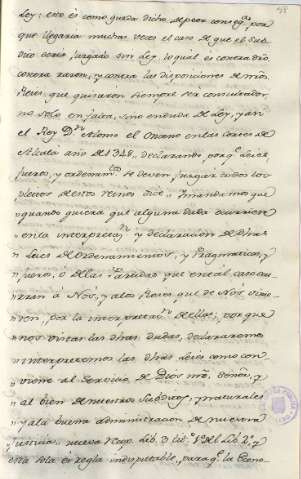 Ley: esto es como queda dicho de peor conseq.ª porque
que llegaria muchas veces el caso de que el Sub-
dito seria juzgado sin Ley, lo qual es contra dro
contra razon, y contra las disposiciones de nros
Reyes que quisieron siempre ser consultados
no solo en falta, sino en duda de Ley, y así
el Rey D.n Alonso el Onceno en las Cortes de
Alcalá año de 1348, declarando por q.e Leyes
fueros, y ordenam.tos se deven juzgar todos los
pleitos de estos reinos dice: Y mandamos que
" quando quiera que alguna duda ocurriere
" en la interpretac.n y declaracion de dhas
" Leies de Ordenamientos, y Pragmaticas, y
" fueros, o de las Partidas que en tal caso recu-
" rran à Nos, y a los Reyes que de Nos vinie-
" ren, por la interpretac.n de ellas; por que
" nos vistas las dhas. dudas, declararemos
" è interpretemos las dhas leies como con-
" viene al Servicio de Dios nro Señor, y
" al bien de nuestros Subditos, y naturales
" y a la buena administracion de nuestra
" Justicia. nueva Recop. Lib. 3 tit. 1º del Lib. 2º, y
esta sola es regla indisputable, para q.e la